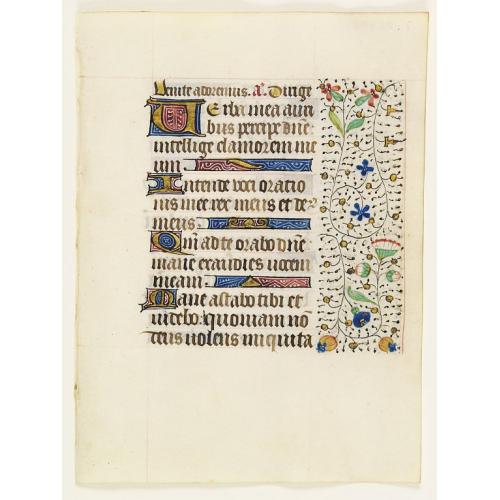 Venite adoremus. a͞. Dirige
Verba mea auri
bus percipe dn̄e:
intellige clamorem me
um
Intende voci oratio
nis mee rex meus et de
meus.
Qm̄ ad te orabo dn̄e
mane exaudies vocem
meam.
Mane astabo tibi et
videbo: quoniam nō
deus volens iniquita